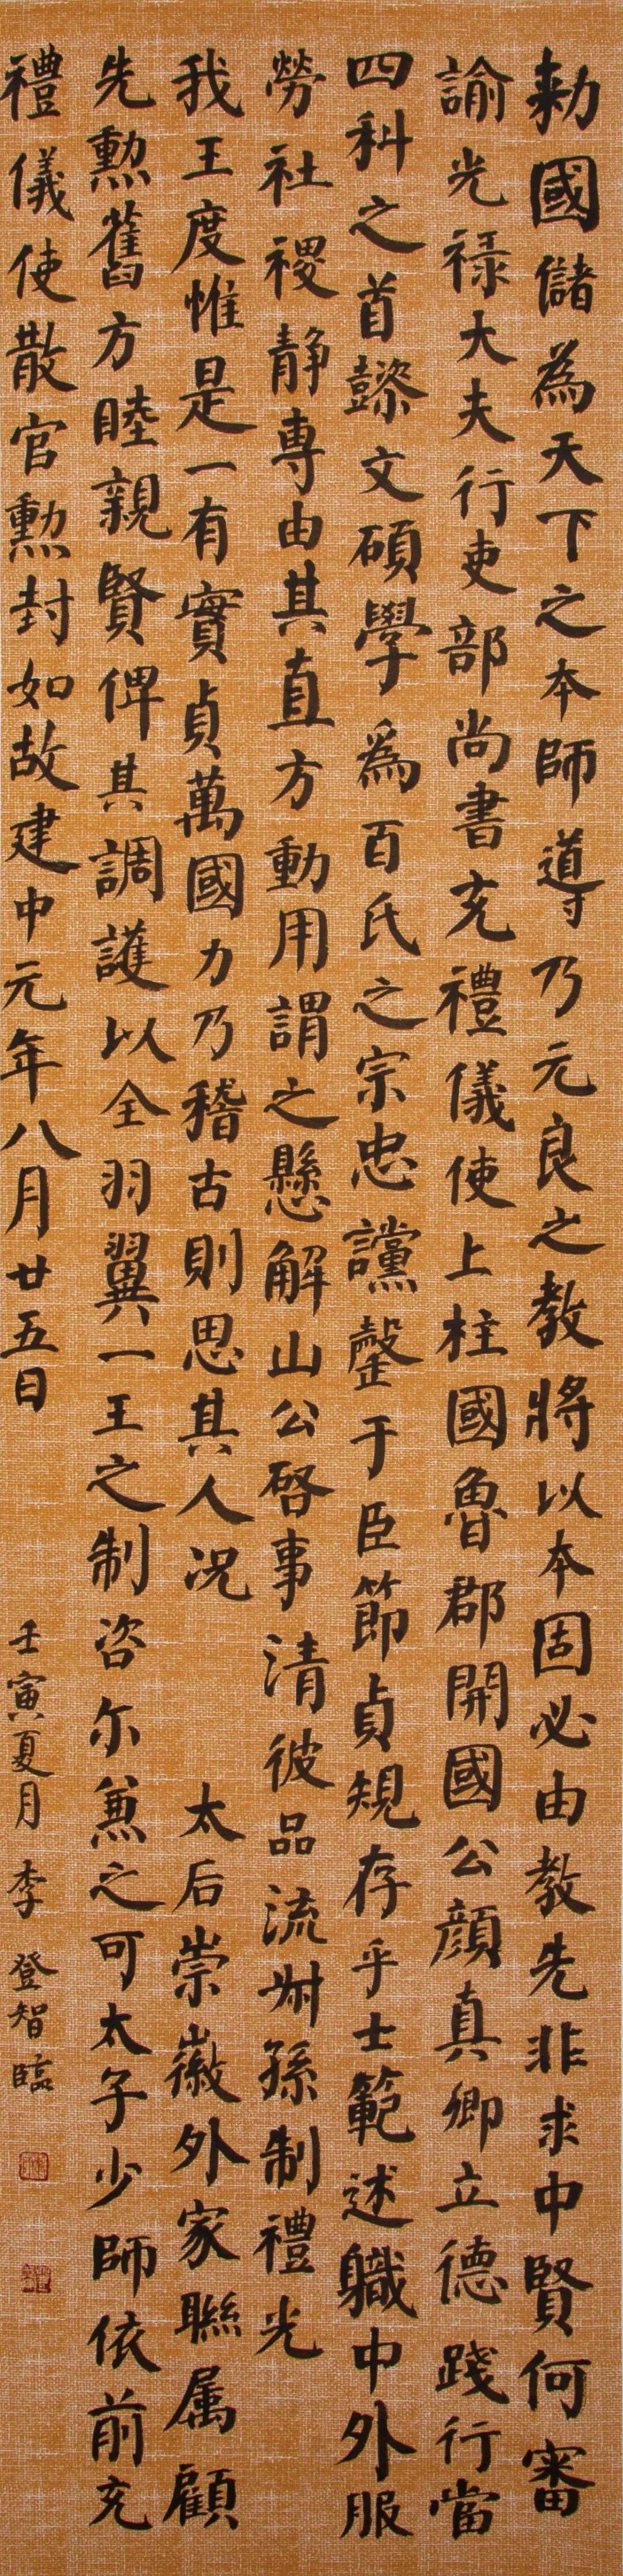 勅國儲為天下之本師導乃元良之教將以本固必由教先非求中賢何審
諭光禄大夫行吏部尚書充禮儀使上柱國魯郡開國公顔真卿立德踐行當
四科之首懿文碩學為百氏之宗忠讜罄于臣節貞規存乎士範述職中外服
勞社稷静專由其直方動用謂之懸解山公啓事清彼品流叔孫制禮光
我王度惟是一有實貞萬國力乃稽古則思其人况太后崇徽外家聯属顧
先勲舊方睦親賢俾其調護以全羽翼一王之制咨尓兼之可太子少師依前充
禮儀使散官勲封如故建中元年八月廿五日
壬寅夏月李登智臨